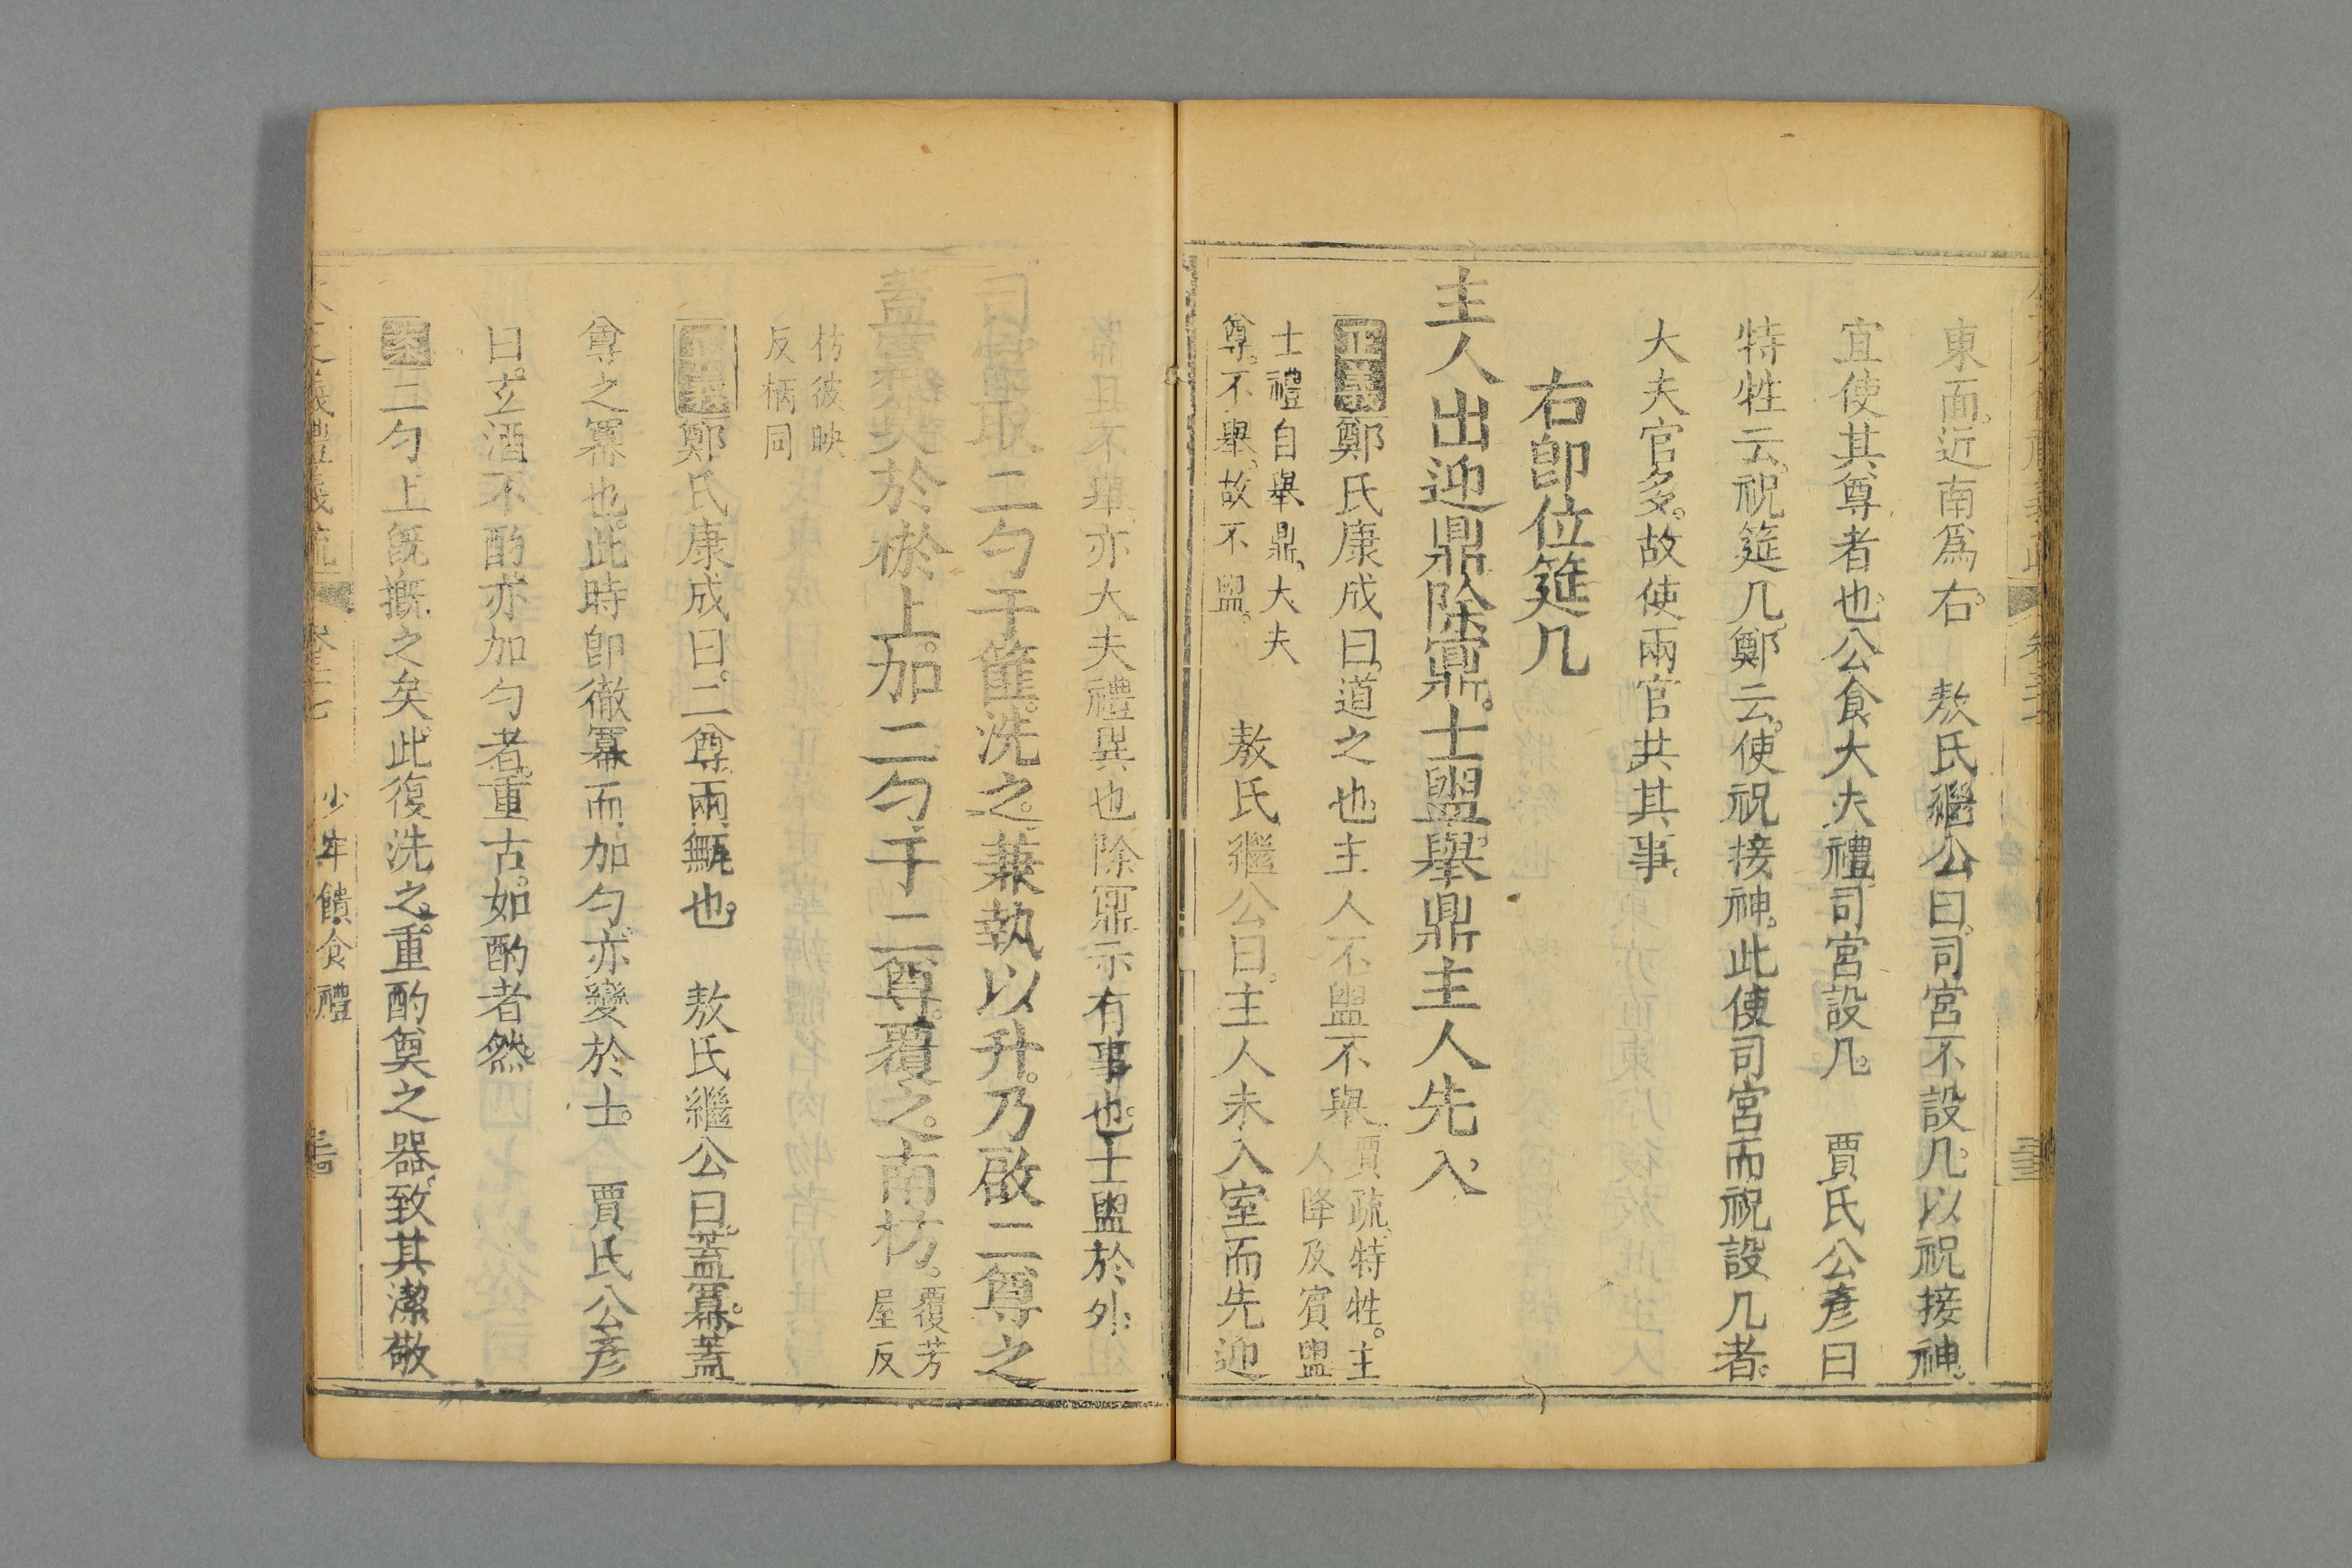 東面近南爲右 敖氏繼公曰司宮不設几以祝接神
宜使其尊者也公食大夫禮司宮設几 賈氏公彥曰
特牲云祝筵几鄭云使祝接神此使司宮而祝設几者
大夫官多故使兩官共其事
右卽位筵几
主人出迎鼎除鼏士盥舉鼎主人先入
正義鄭氏康成曰道之也主人不盥不舉
賈疏特牲主
人降及賓盥
士禮自舉鼎大夫
尊不舉故不盥
敖氏繼公曰主人未入室而先迎
不舉亦大夫禮異也除鼏示有事也士盥於外
司宮取二勺于篚洗之兼執以升乃啟二尊之
蓋冪奠於棜上加二勺于二尊覆之南枋
覆芳
屋反
枋彼映
反柄同
正義鄭氏康成曰二尊兩甒也 敖氏繼公曰蓋冪蓋
尊之冪也此時卽徹冪而加勺亦變於士 賈氏公彥
曰玄酒不酌亦加勺者重古如酌者然
案二勺上旣摡之矣此復洗之重酌奠之器致其潔敬
義禮義疏 卷三十七 少牢饋食禮